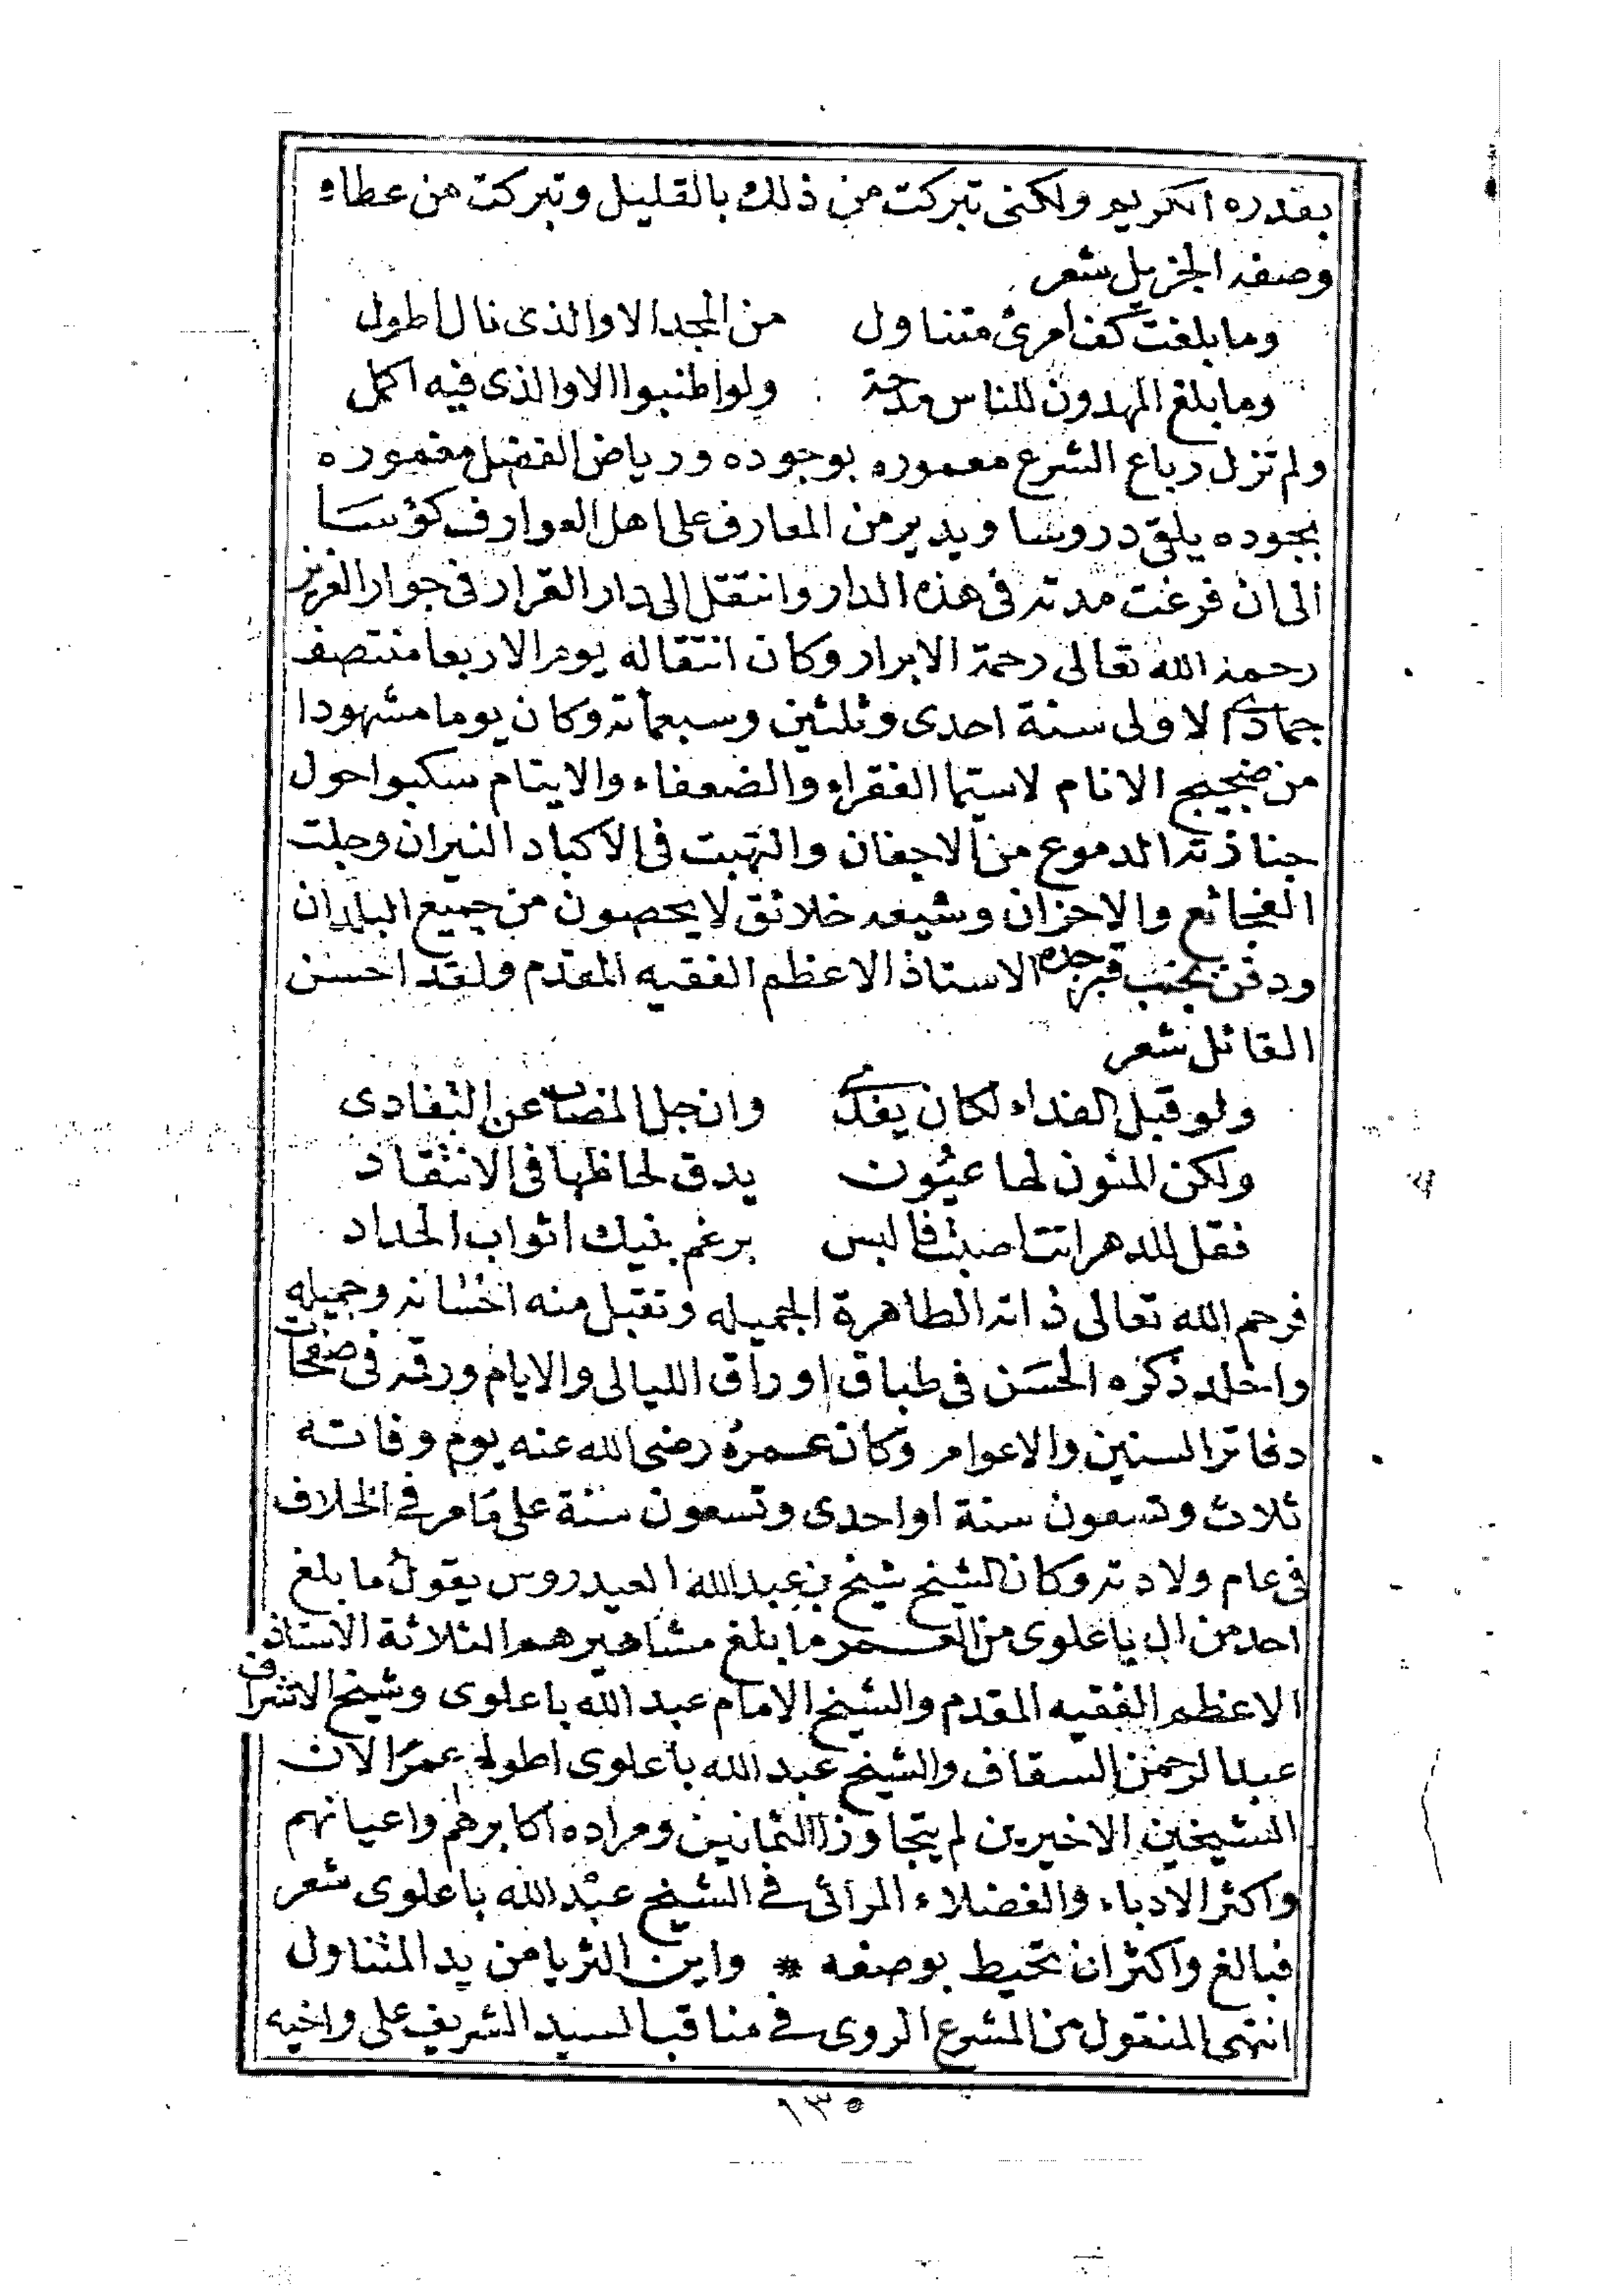 بقدره الكريم ولكنى تبركت من ذلك بالقليل وتبركت من عطاء
وصفه الجزيل شعر
وما بلغت كف امرئ متناول من المجد الا والذى نال اطول
وما بلغ المهدون للناس مدحة ولو اطنبوا الا والذى فيه اكمل
ولم تزل رباع الشرع معموره بوجوده ورياض الفضل مغموره
بجوده يلقى دروسا ويدير من المعارف على اهل العوارف كؤسا
الى ان فرغت مدته فى هذه الدار وانتقل الى دار القرار فى جوار العزيز
رحمه الله تعالى رحمة الابرار وكان انتقاله يوم الاربعا منتصف
جمادى الاولى سنة احدى وثلثين وسبعمأته وكان يوما مشهودا
من ضجيج الانام لاسيما الفقراء والضعفاء والايتام سكبوا حول
جنازته الدموع من الاجفان والتهبت فى الاكباد النيران وجلت
الفجائع والاحزان وشيعه خلائق لا يحصون من جميع البلدان
ودفن بجنب قبر جده الاستاذ الاعظم الفقيه المقدم ولقد احسن
القائل شعر
ولو قبل الفداء لكان يفدى وان جل المصاب عن التفادى
ولكن المنون لها عيون يدق لحاظها فى الانتقاد
فقل للدهر انت اصبت فالبس برغم بنيك اثواب الحداد
فرحم الله تعالى ذاته الطاهرة الجميله وتقبل منه احسانه وجميله
واخلد ذكره الحسن فى طباق اوراق الليالى والايام ورقمه فى صفحات
دفاتر السنين والاعوام وكان عمره رضى الله عنه يوم وفاته
ثلاث وتسعون سنة او احدى وتسعون سنة على مامر فى الخلاف
فى عام ولادته وكان الشيخ شيخ بن عبدالله العيدروس يقول ما بلغ
احد من ال باعلوى من العمر ما بلغ مشاهيرهم الثلاثة الاستاذ
الاعظم الفقيه المقدم والشيخ الامام عبدالله باعلوى وشيخ الاشراف
عبدالرحمن السقاف والشيخ عبدالله باعلوى اطوله عمرا لان
الشيخين الاخيرين لم يتجاوزا الثمانين ومراده اكابرهم واعيانهم
واكثر الادباء والفضلاء المرائى فى الشيخ عبدالله باعلوى شعر
فبالغ واكثر ان تحيط بوصفه * واين الثريا من يد المتناول
انتهى المنقول من المشرع الروى فى مناقب السيد الشريف على واخيه
١٣٥